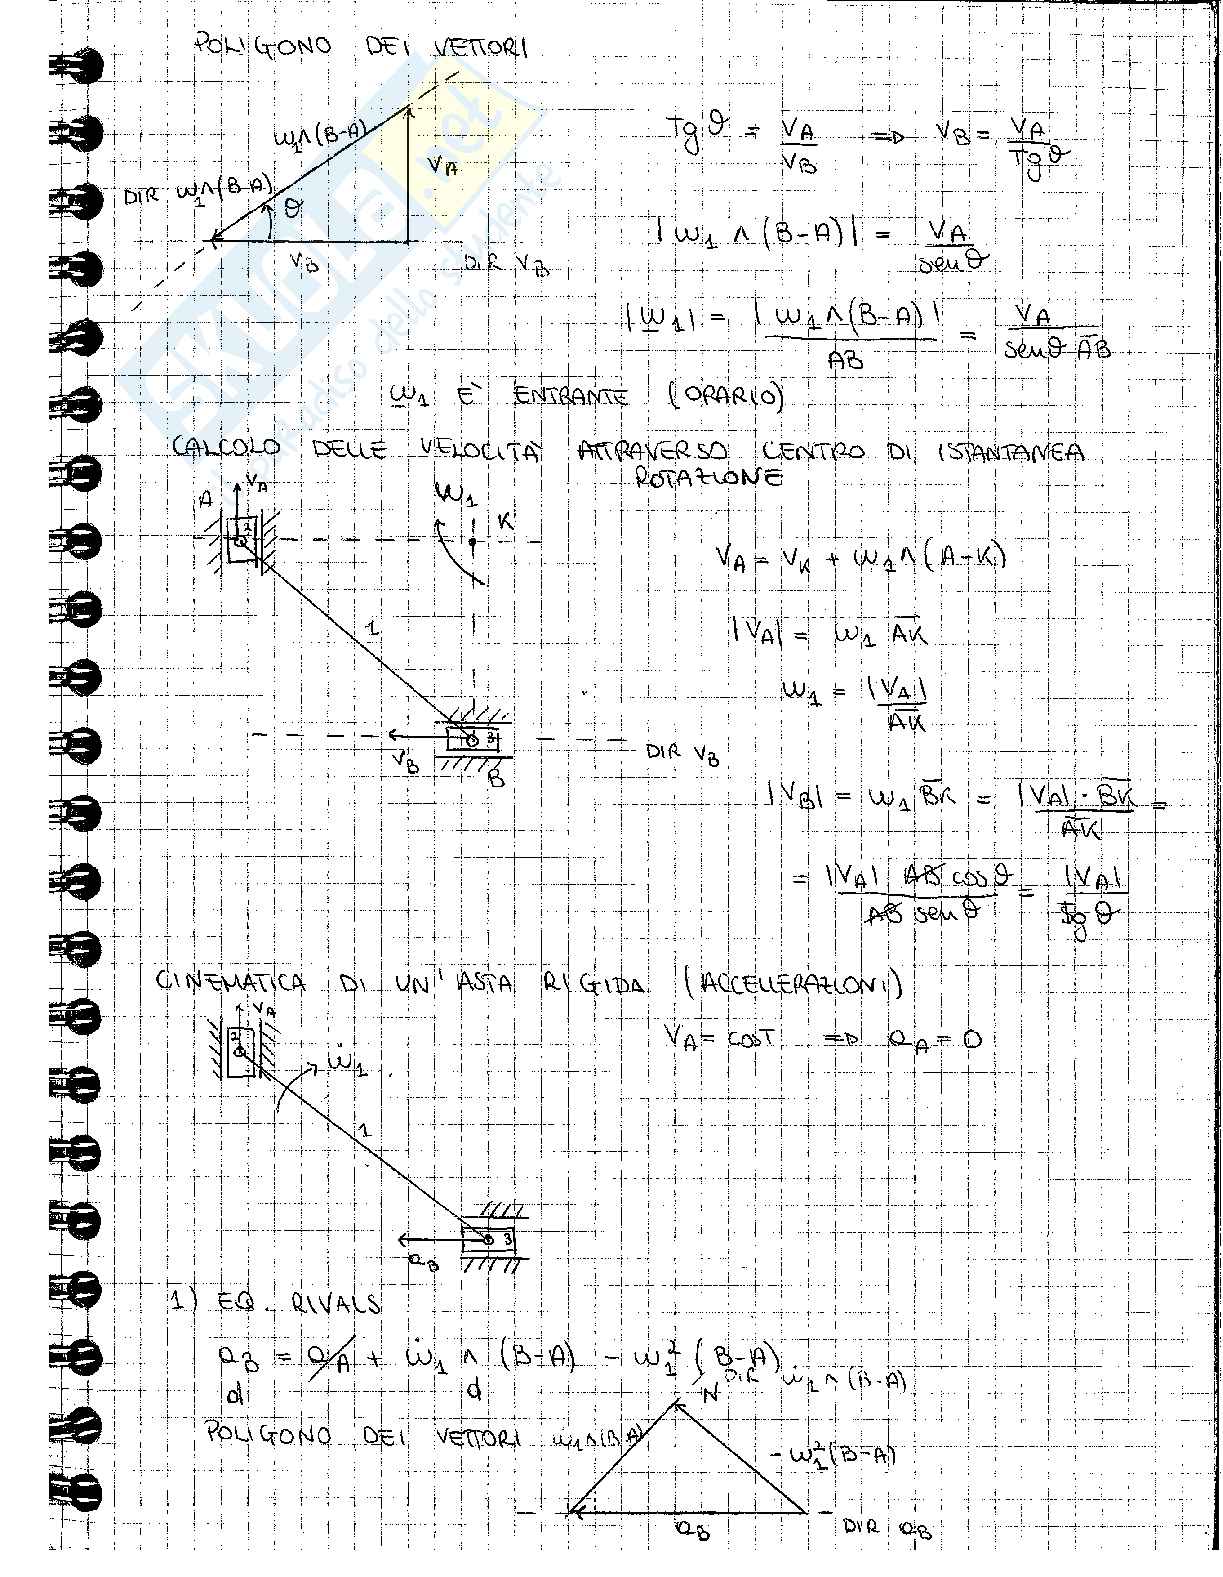 POLIGONO DEI VETTORI
ω1∧(B-A)
DIR ω1∧(B-A)
VA
θ
VB
DIR VB
Tgθ = VA/VB => VB = VA/Tgθ
|ω1 ∧ (B-A)| = VA/senθ
|ω1| = |ω1∧(B-A)|/AB = VA/senθ AB
ω1 È ENTRANTE (ORARIO)
CALCOLO DELLE VELOCITÀ ATTRAVERSO CENTRO DI ISTANTANEA
ROTAZIONE
A
VA
ω1
K
2
VA = VK + ω1∧(A-K)
1
|VA| = ω1 AK
ω1 = |VA|/AK
3
VB
B
DIR VB
|VB| = ω1 BK = |VA| · BK/AK =
= |VA| AB cosθ/AB senθ = |VA|/Tgθ
CINEMATICA DI UN'ASTA RIGIDA (ACCELLERAZIONI)
VA
VA = COST => aA = 0
2
ω̇1
1
3
aB
1) EQ. RIVALS
aB = aA + ω̇1 ∧ (B-A) - ω1² (B-A)
d d N
DIR ω̇1∧(B-A)
POLIGONO DEI VETTORI
ω̇1∧(B-A)
-ω1²(B-A)
aB
DIR aB
SKUOLA.net
paradiso dello studente